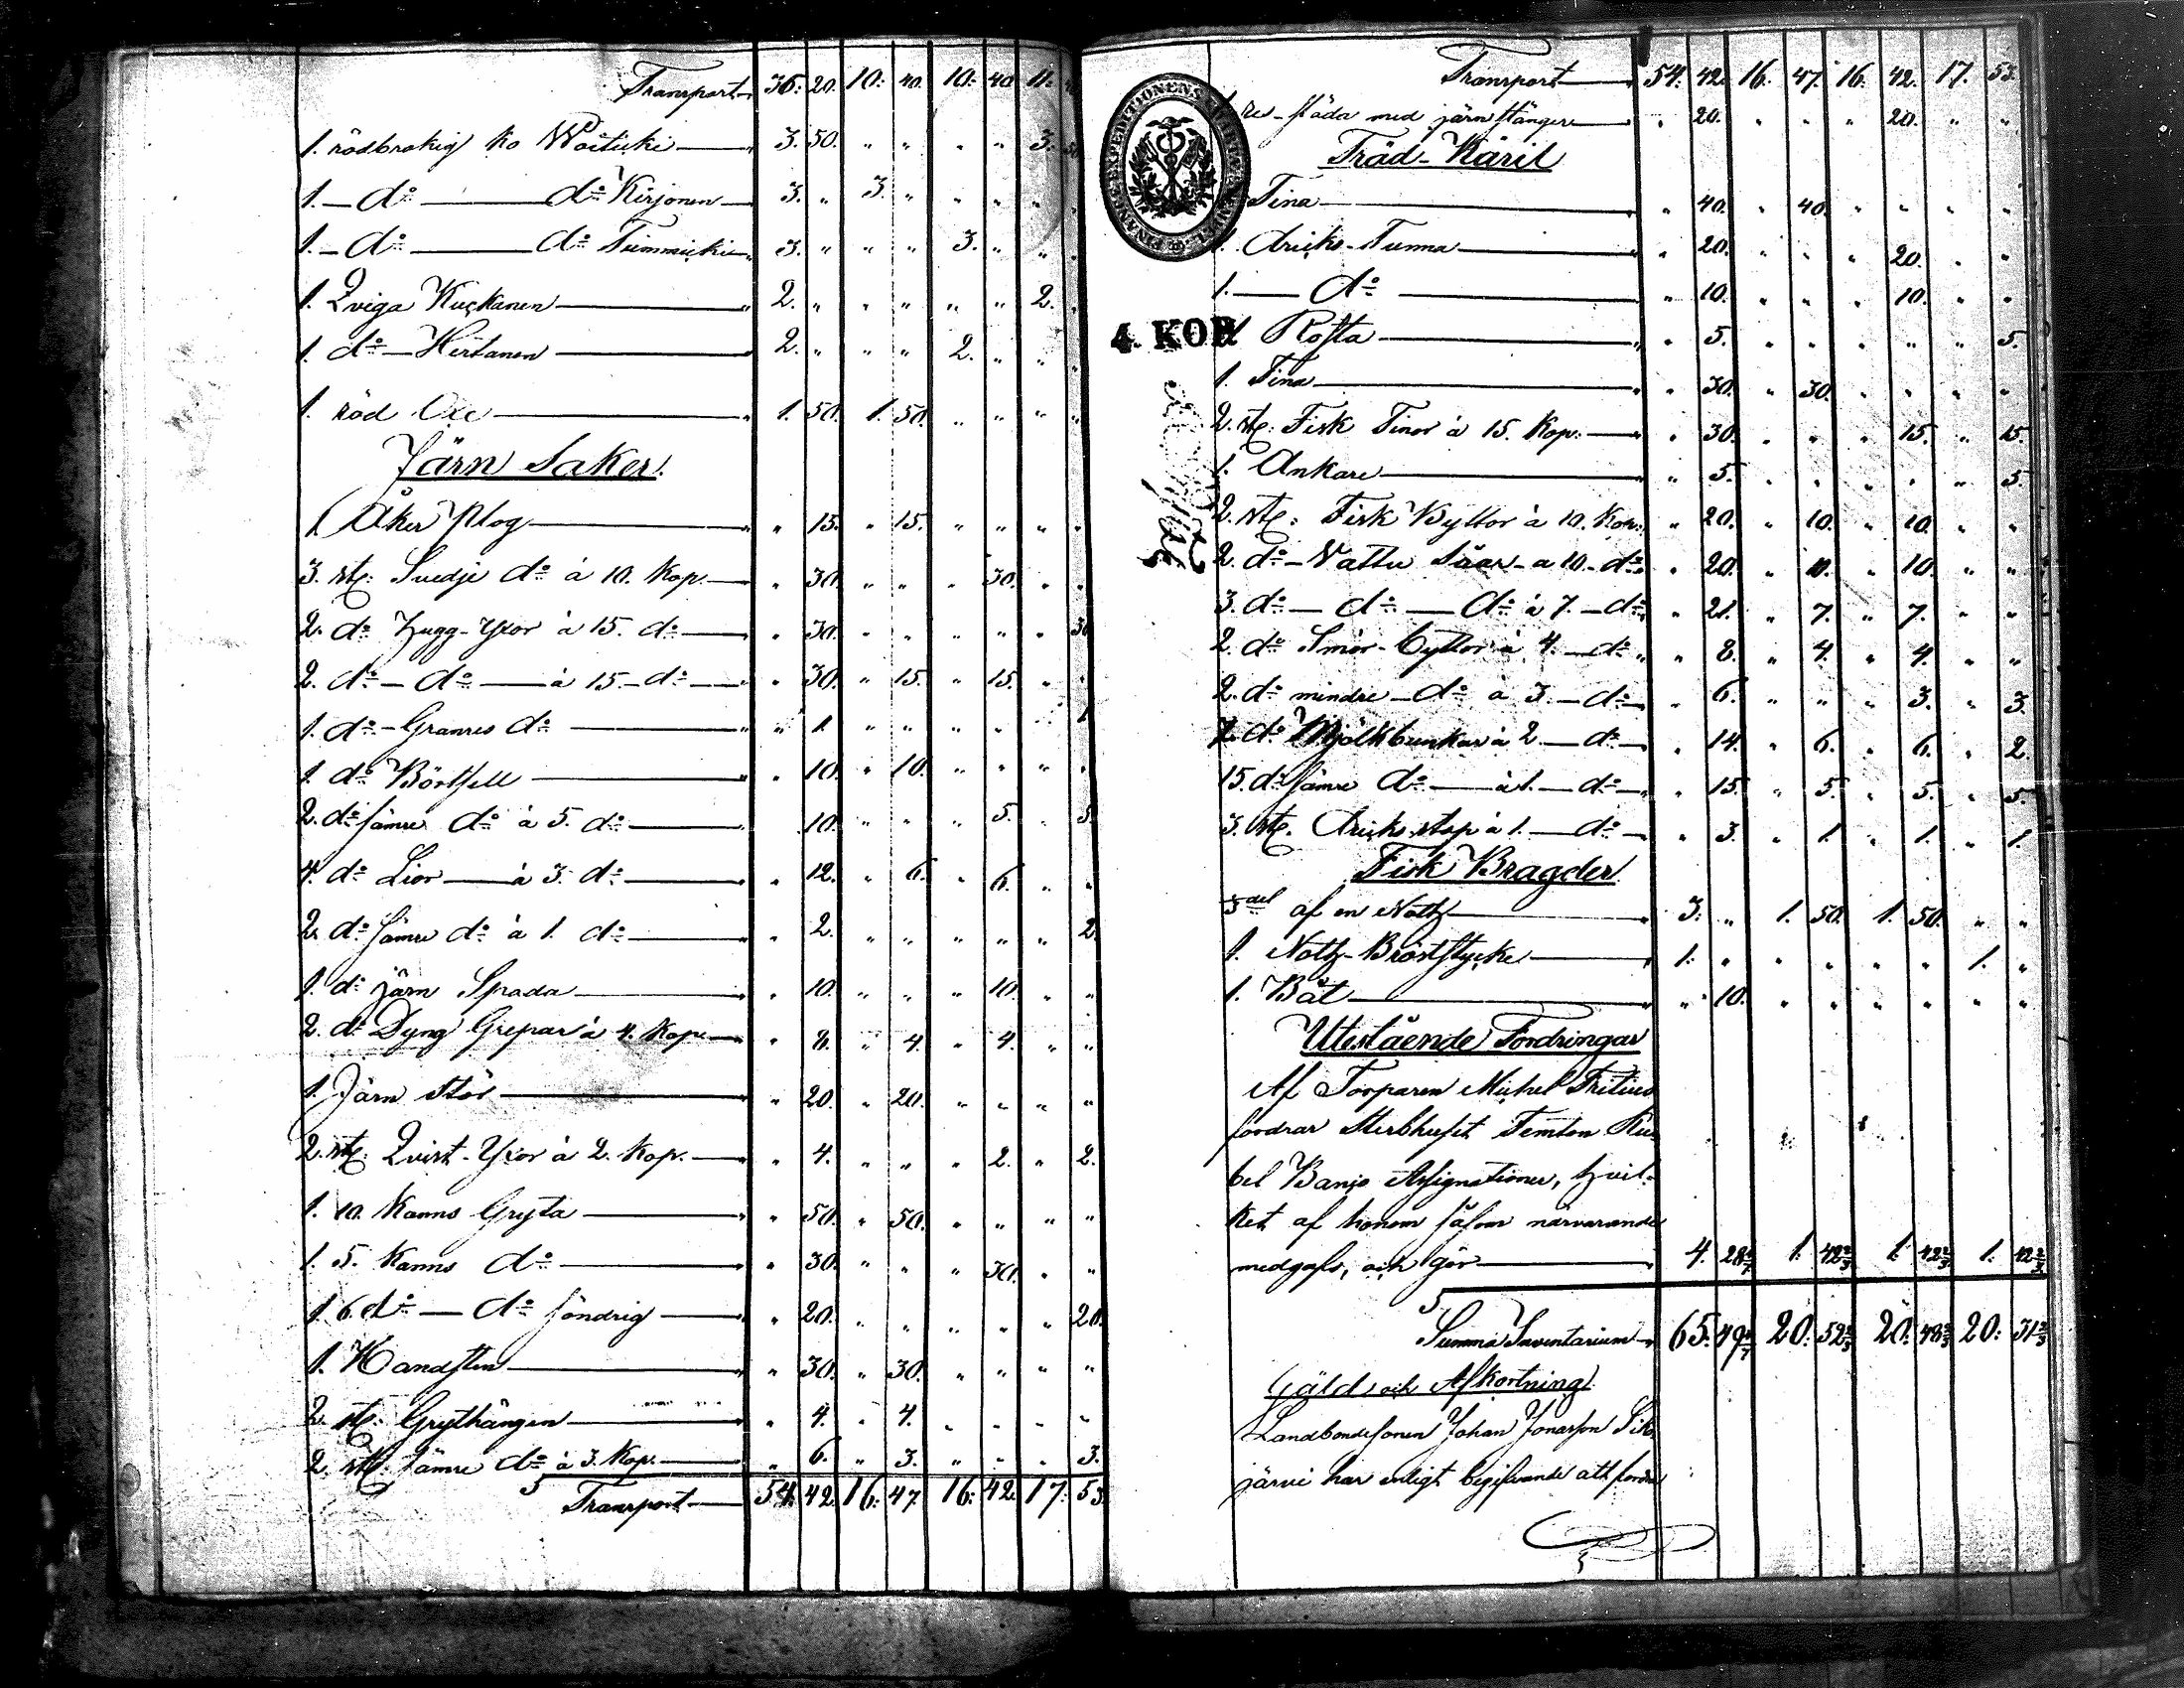 Transport 36. 20. 10. 40. 10. 40. 11.
1. rödbrokig Ko Woiticki 3. 50. " " " " 3.
1. d:o d:o Kirjonen 3. " 3. " " " "
1. d:o d:o Tummicki 3. " " " 3. " "
1. Qviga Kuckanen 2. " " " " " 2.
1. d:o Hertanen 2. " " " 2. " "
1. röd Oxe 1. 50. 1. 50. " " "
Järn Saker.
1 Åker Plog " 15. " 15. " " " "
3. st: Svedje d:o à 10. Kop. " 30. " " " 30. " "
2. d:o Hugg-Yxor à 15. d:o " 30. " " " " " 30
2. d:o d:o à 15. d:o " 30. " 15. " 15. " "
1. d:o Granres d:o " 1. " " " " " 1
1. d:o Börtsell " 10. " 10. " " " "
2. d:o sämre d:o à 5. d:o 10. " " " 5. " 5.
4. d:o Lior à 3. d:o " 12. " 6. " 6. " "
2. d:o sämre d:o à 1. d:o " 2. " " " " " 2.
1. d:o järn Spada " 10. " " " 10. " "
2. d:o Dyng Grepar à 4. Kop. " 8. " 4. " 4. " "
1. Järn Stör " 20. " 20. " " " "
2. st: Qvist-Yxor à 2. Kop. " 4. " " " 2. " 2.
1. 10. Kanns Gryta " 50. " 50. " " " "
1. 5. Kanns d:o " 30. " " " 30. " "
1. 6. d:o d:o söndrig " 20. " " " " " 20.
1. Handsten " 30. " 30. " " " "
2. st: Grythängen " 4. " 4. " " " "
2. st: sämre d:o à 3. Kop. " 6. " 3. " " " 3.
Transport 54. 42. 16. 47. 16. 42. 17. 53
Transport 54. 42. 16. 47. 16. 42. 17. 53.
släda med järn stänger " 20. " " " 20. " "
Träd-Käril
Tina " 40. " 40. " " " "
1. dricks-Tunna " 20. " " " 20. " "
1. d:o " 10. " " " 10. " "
4. KOP.
1 Rosta " 5. " " " " " 5.
1. Tina " 30. " 30. " " " "
2. st: Fisk Tinor à 15. Kop. " 30. " " " 15. " 15.
1. Ankare " 5. " " " " " 5.
2. st: Fisk Byttor à 10. Kop. " 20. " 10. " 10. " "
2. d:o Vattu Såar à 10. d:o " 20. " 10. " 10. " "
3. d:o d:o d:o à 7. d:o " 21. " 7. " 7. " "
2. d:o Smör-byttor à 4. d:o " 8. " 4. " 4. " "
2. d:o mindre d:o à 3. d:o " 6. " " " 3. " 3.
7. d:o Mjölkbunkar à 2. d:o " 14. " 6. " 6. " 2.
15. d:o sämre d:o à 1. d:o " 15. " 5. " 5. " 5.
3. st: dricks stop à 1. d:o " 3. " 1. " 1. " 1.
Fisk Bragder
3del af en Noth 3. " 1. 50. 1. 50. " "
1. Noth-Bröststycke 1. " " " " " 1. "
1. Båt " 10. " " " " " "
Utestående Fordringar
Af Torparen Michel
fordrar Sterbhuset Femton Ru-
bel Banco Assignationer, hvil-
ket af honom såsom närvarande
medgafs, och gör 4. 28 4/7 1. 42 2/3 1. 42 2/3 1. 42 2/3
Summa Inventarium 65. 49 4/7 20. 52 2/3 20. 48 2/3 20. 31 2/3
Gäld och Afkortning
Landbondesonen Johan Jonasson
järvi har enligt begifvande att fordra